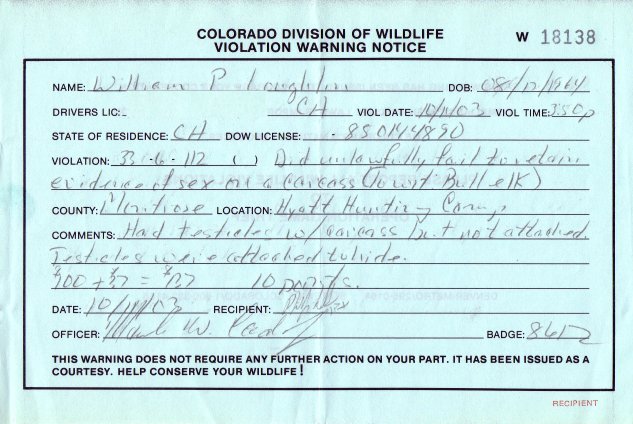 COLORADO DIVISION OF WILDLIFE
VIOLATION WARNING NOTICE
W 18138
NAME: William P. Loughlin DOB: 08/17/1964
DRIVERS LIC: CH VIOL DATE: 10/11/03 VIOL TIME: 350p
STATE OF RESIDENCE: CH DOW LICENSE: 850144890
VIOLATION: 33-6-112 ( ) Did unlawfully fail to retain
evidence of sex on a carcass (to wit Bull elk)
COUNTY: Montrose LOCATION: Hyatt Hunting Camp
COMMENTS: Had testicles w/carcass but not attached.
Testicles were attached to hide.
$100 + $37 = $137 10 points.
DATE: 10/11/03 RECIPIENT:
OFFICER: BADGE:
THIS WARNING DOES NOT REQUIRE ANY FURTHER ACTION ON YOUR PART. IT HAS BEEN ISSUED AS A
COURTESY. HELP CONSERVE YOUR WILDLIFE!
RECIPIENT